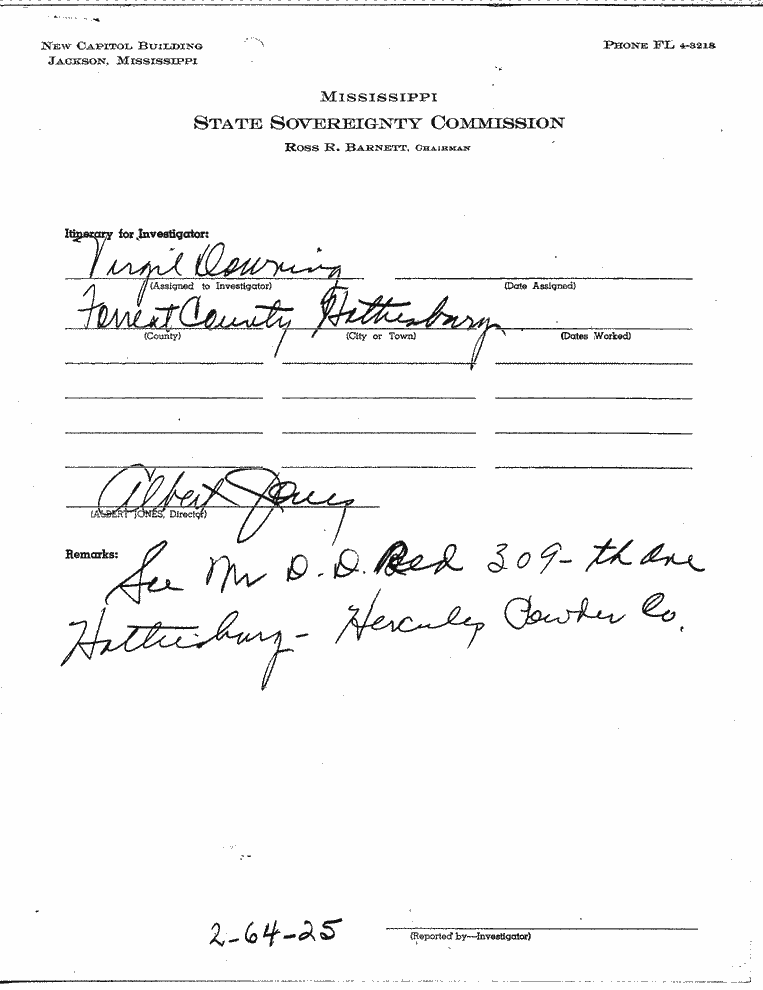 NEW CAPITOL BUILDING
JACKSON, MISSISSIPPI
PHONE FL 4-3218
MISSISSIPPI
STATE SOVEREIGNTY COMMISSION
ROSS R. BARNETT, CHAIRMAN
Itinerary for Investigator:
Virgil Downing
(Assigned to Investigator) (Date Assigned)
Forrest County Hattiesburg
(County) (City or Town) (Dates Worked)
Albert Jones
(ALBERT JONES, Director)
Remarks:
See Mr D. D. 309- th Ave
Hattiesburg- Hercules Powder Co.
2-64-25
(Reported by—Investigator)